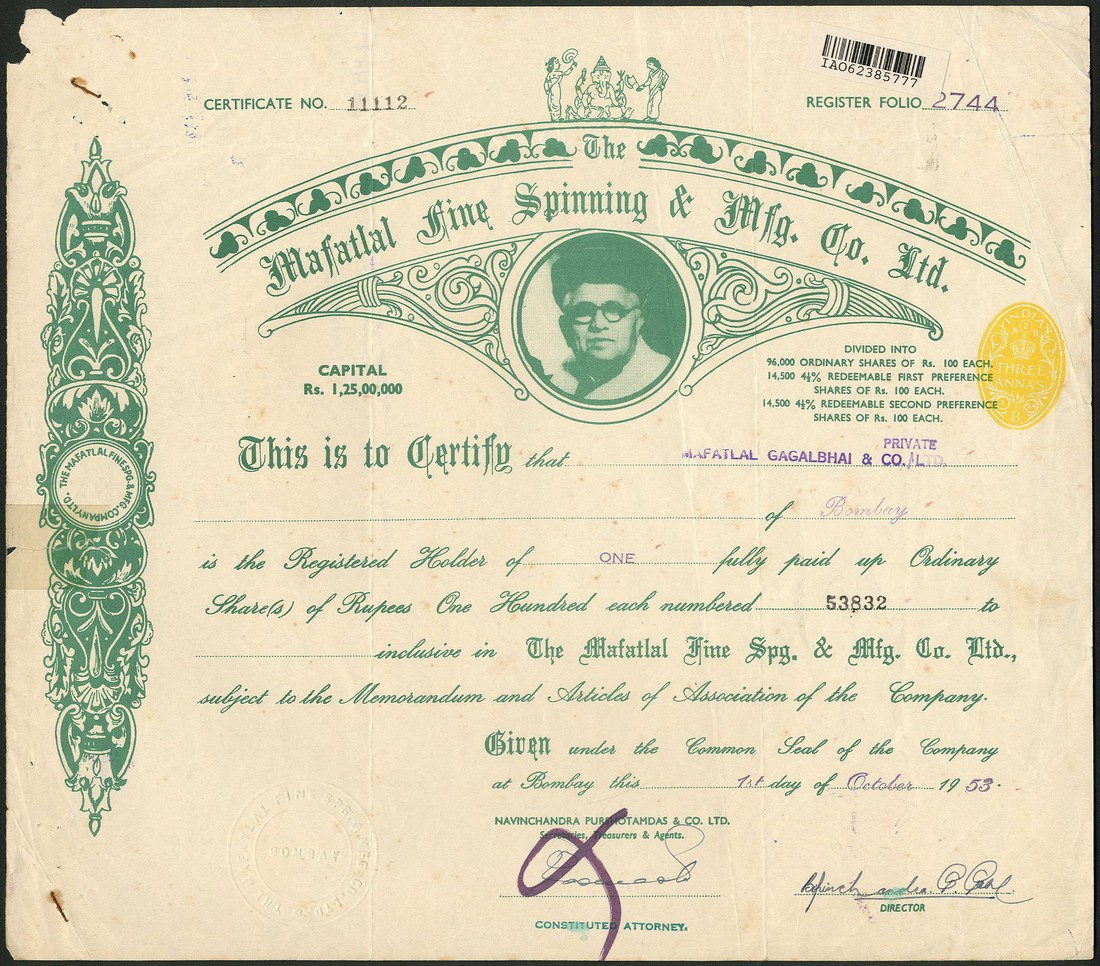 IAO62385777
CERTIFICATE NO. 11112
REGISTER FOLIO 2744
The
Mafatlal Fine Spinning & Mfg. Co. Ltd.
INDIA
THREE
ANNAS
CAPITAL
Rs. 1,25,00,000
DIVIDED INTO
96,000 ORDINARY SHARES OF Rs. 100 EACH.
14,500 4½% REDEEMABLE FIRST PREFERENCE
SHARES OF Rs. 100 EACH.
14,500 4½% REDEEMABLE SECOND PREFERENCE
SHARES OF Rs. 100 EACH.
This is to Certify that MAFATLAL GAGALBHAI & CO. PRIVATE LTD.
of Bombay
THE MAFATLAL FINE SPG. & MFG. COMPANY LTD.
is the Registered Holder of ONE fully paid up Ordinary
Share(s) of Rupees One Hundred each numbered 53832 to
inclusive in The Mafatlal Fine Spg. & Mfg. Co. Ltd.,
subject to the Memorandum and Articles of Association of the Company.
Given under the Common Seal of the Company
at Bombay this 1st day of October 1953.
NAVINCHANDRA PURSHOTAMDAS & CO. LTD.
Secretaries, Treasurers & Agents.
BOMBAY
CONSTITUTED ATTORNEY.
DIRECTOR